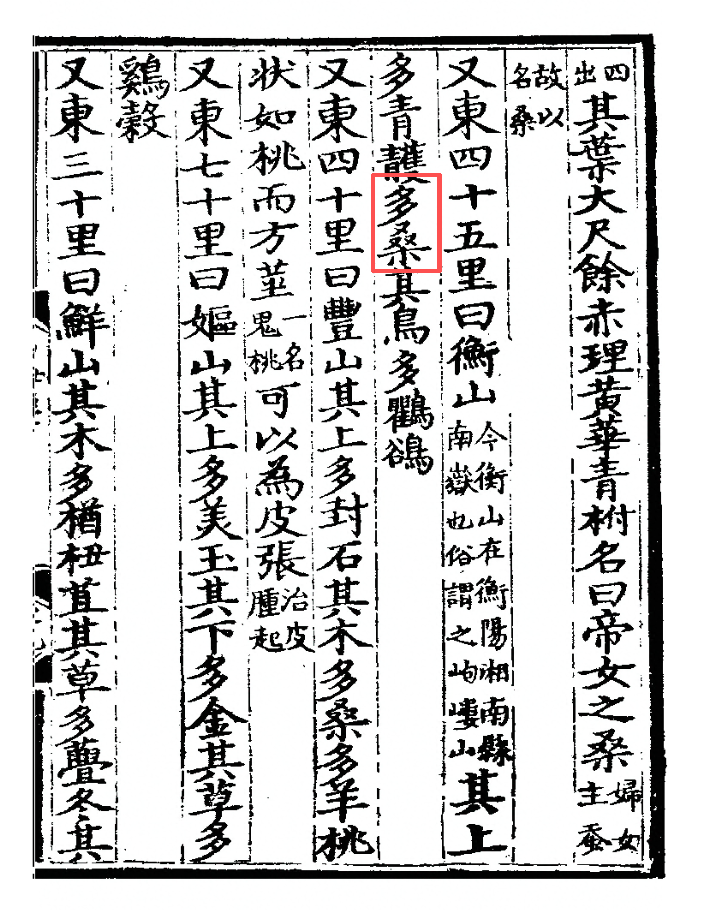 四出其葉大尺餘赤理黃華青柎名曰帝女之桑婦女主蚕
故以名桑
又東四十五里曰衡山今衡山在衡陽湘南縣南嶽也俗謂之岣嶁山其上
多青䨼多桑其鳥多鸜鵒
又東四十里曰豐山其上多封石其木多桑多羊桃
状如桃而方莖一名鬼桃可以為皮張治皮腫起
又東七十里曰嫗山其上多美玉其下多金其草多
鷄榖
又東三十里曰鮮山其木多楢杻苴其草多亹冬其